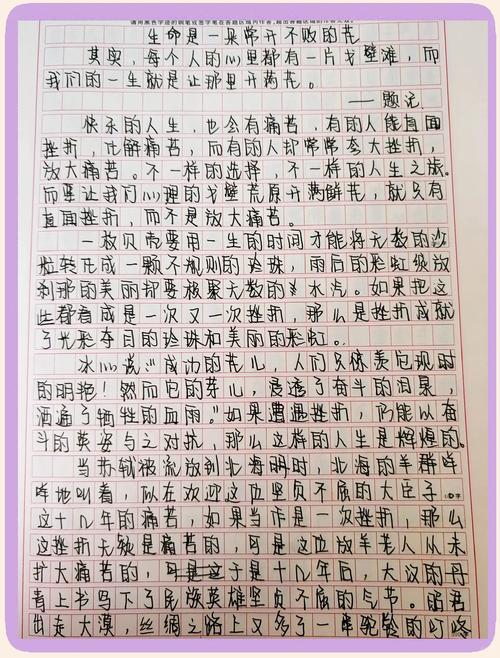 请用黑色字迹的钢笔或签字笔在各题区域内作答,超出答题区域的作答无效。
生命是一朵常开不败的花
其实,每个人的心里都有一片戈壁滩,而
我们的一生就是让那里开满花。
——题记
快乐的人生,也会有痛苦,有的人能直面
挫折,化解痛苦,而有的人却常常夸大挫折,
放大痛苦。不一样的选择,不一样的人生之旅。
而要让我们心理的戈壁荒原开满鲜花,就只有
直面挫折,而不是放大痛苦。
一枚贝壳要用一生的时间才能将无数的沙
粒转化成一颗不规则的珍珠,雨后的彩虹绽放
刹那的美丽却要凝聚无数的水汽。如果把这
些都看成是一次又一次挫折,那么是挫折成就
了光彩夺目的珍珠和美丽的彩虹。
冰心说:"成功的花儿,人们只惊羡它现时
的明艳!然而它的芽儿,浸透了奋斗的泪泉,
洒遍了牺牲的血雨。"如果遭遇挫折,仍能以奋
斗的英姿与之对抗,那么这样的人生是辉煌的。
当苏轼被流放到北海明时,北海的羊群咩
咩地叫着,似在欢迎这位坚贞不屈的大臣子。
这十几年的痛苦,如果当作是一次挫折,那么
这挫折无疑是痛苦的,可是这位放羊老人从未
扩大痛苦的,于是十几年后,大汉的丹
青上书写下了民族英雄坚贞不屈的气节。昭君
出走大漠,丝绸之路上又多了一串驼铃的叮咚